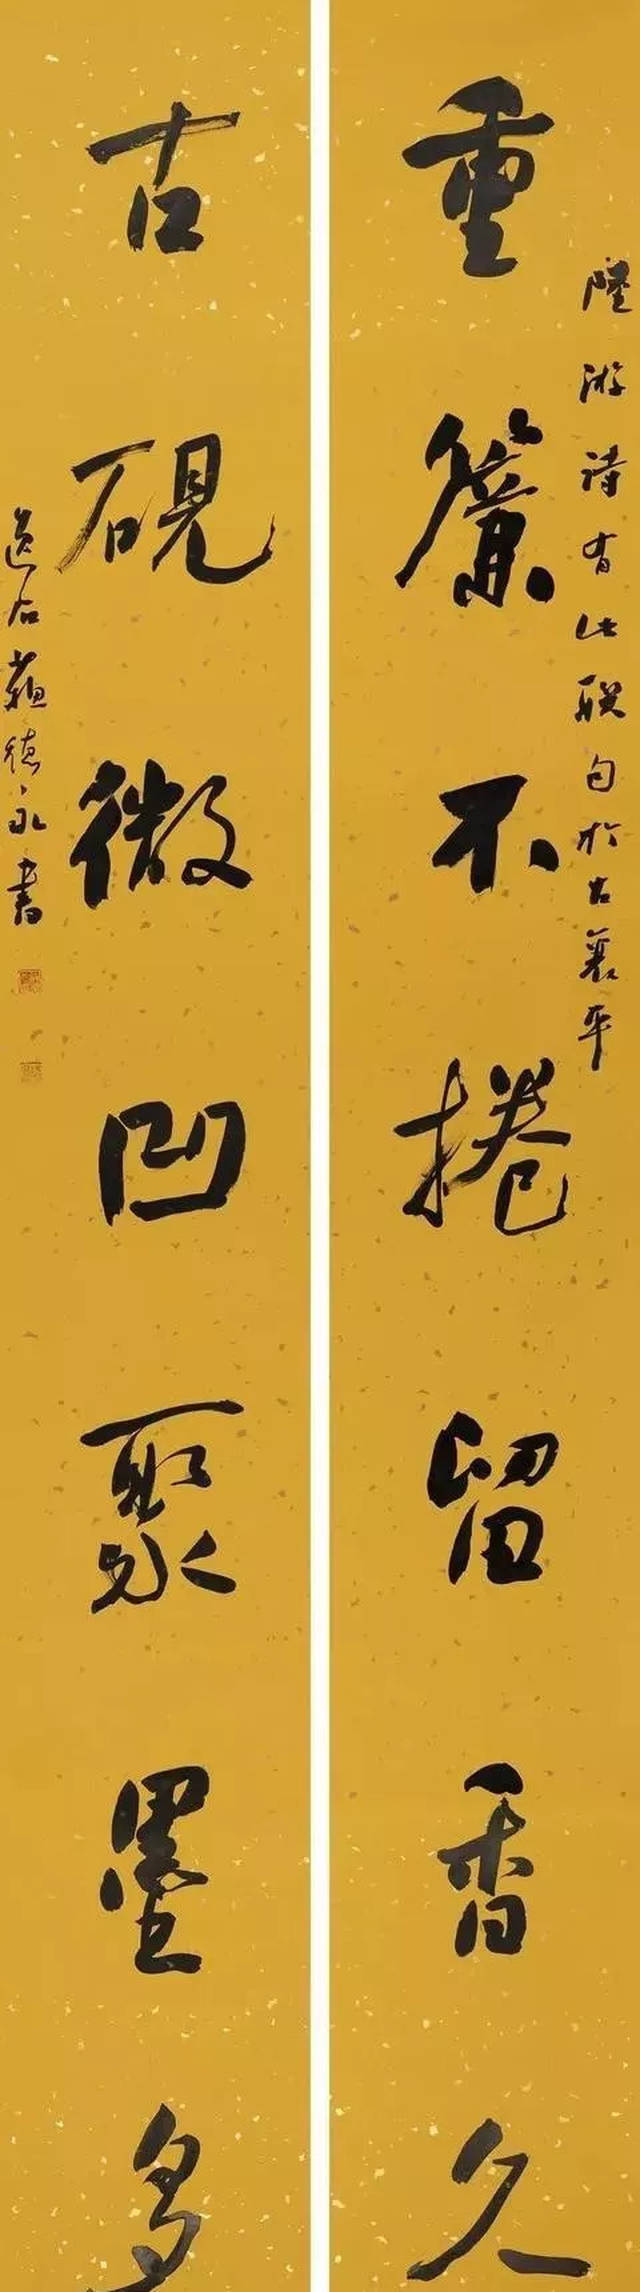 陸游诗有此联句於古襄平
重簾不捲留香久
古硯微凹聚墨多
逸石蘇德永書